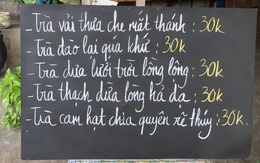 - Trà vải thưa che mắt thánh: 30k
- Trà đào lại quá khứ: 30k
- Trà dưa lưới trời lồng lộng: 30k
- Trà thạch dừa lòng hả dạ: 30k
- Trà cam hạt chia quyền rẽ thúy: 30k